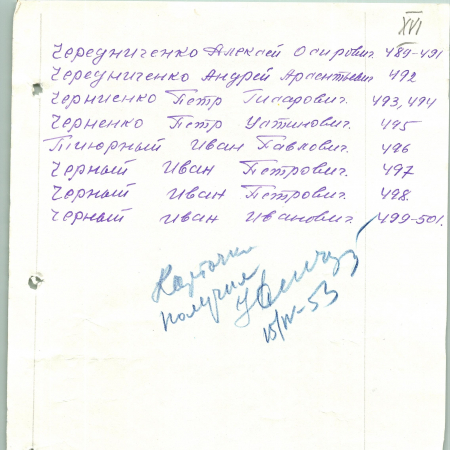 XVI
Чередниченко Алексей Осипович 489-491
Чередниченко Андрей 492
Черниенко Петр Писарович 493, 494
Черненко Петр Устинович 495
Тиюрный Иван Павлович 496
Черный Иван Петрович 497
Черный Иван Петрович 498
Черный Иван Иванович 499-501.
Карточки
получил
15/IV-53